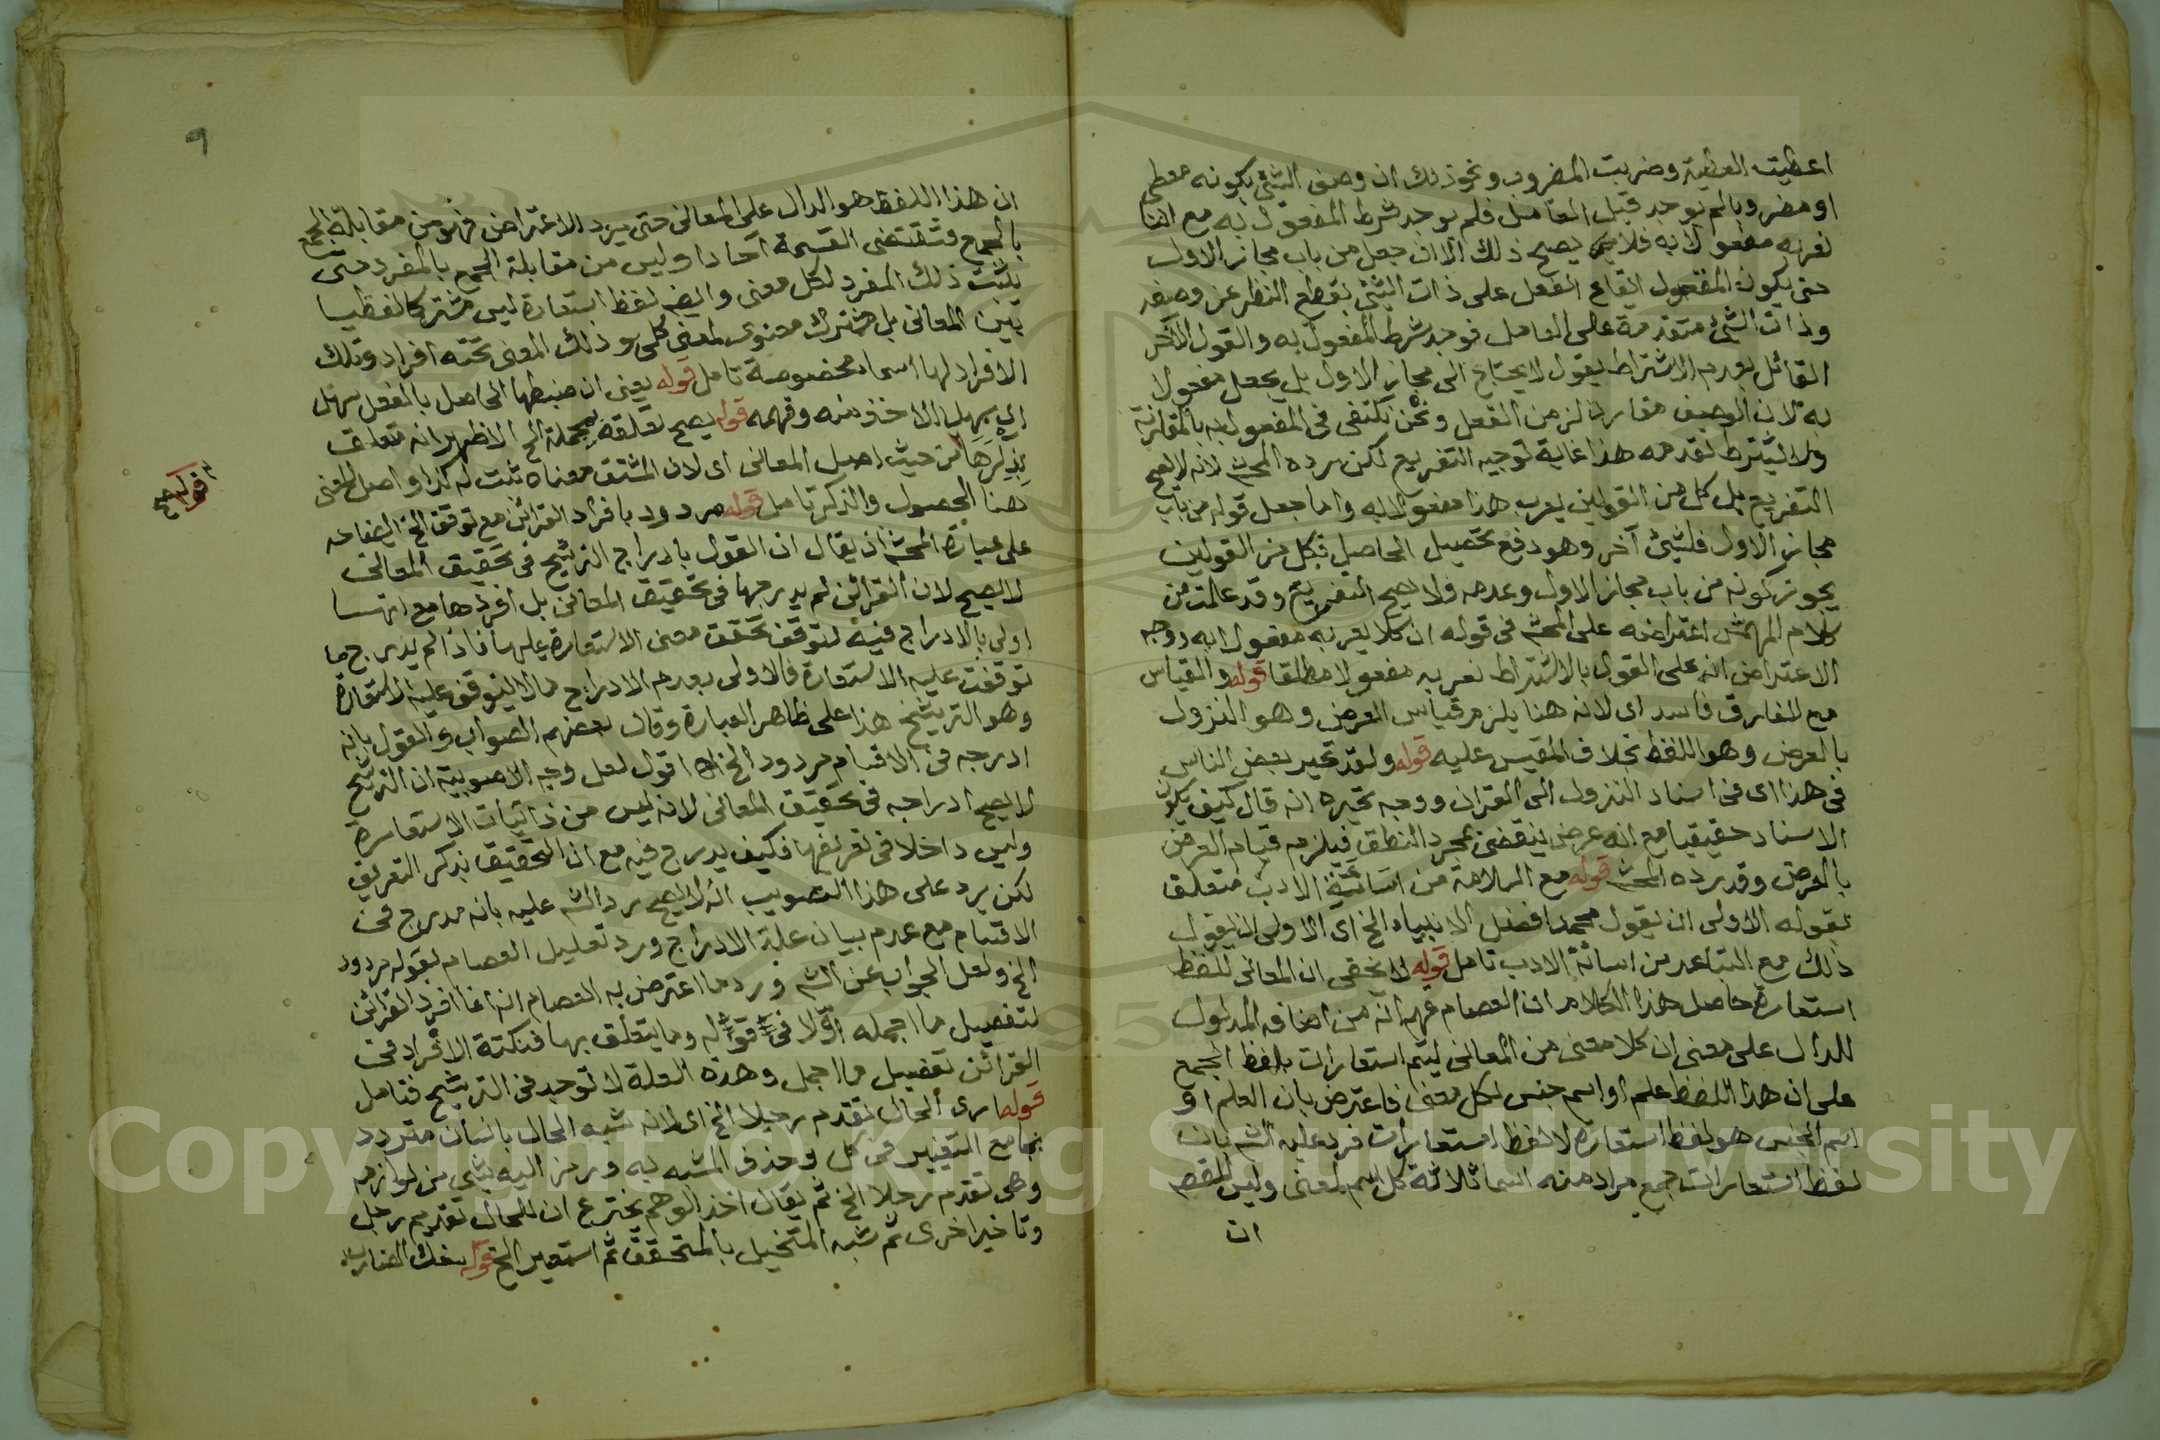 اعطيت العطية وضربت المضروب ونحو ذلك ان وصف الشئ بكونه معطى
او مضروبا لم يوجد قبل العامل فلم يوجد شرط المفعول به مع اننا
نعربه مفعولا به فلا يصح ذلك الا ان جعل من باب مجاز الاول
حتى يكون المفعول ايقاع الفعل على ذات الشئ بقطع النظر عن وصفه
وذات الشئ متقدمة على العامل فوجد شرط المفعول به والقول الآخر
القائل بعدم الاشتراط يقول لا يحتاج الى مجاز الاول بل يجعل مفعولا
به لان الوصف مقارن لزمن الفعل ونحن نكتفى فى المفعول به بالمقارنة
ولا يشترط تقدمه هذا غاية توجيه التفريع لكن رده المحشى لانه لا يصح
التفريع بل كل من القولين يعرب هذا مفعولا به واما جعل قوله من باب
مجاز الاول فلشئ آخر وهو دفع تحصيل الحاصل فكل من القولين
يجوز كونه من باب مجاز الاول وعدمه فلا يصح التفريع وقد علمت من
كلام المهمش اعتراضه على المحشى فى قوله ان كلا يعربه مفعولا به ووجه
الاعتراض انه على القول بالاشتراط نعربه مفعولا مطلقا قوله والقياس
مع الفارق فاسد اى لانه هنا يلزم قياس العرض وهو النزول
بالعرض وهو اللفظ بخلاف المقيس عليه قوله ولقد تحير بعض الناس
فى هذا اى فى اسناد النزول الى القران ووجه تحيره انه قال كيف يكون
الاسناد حقيقيا مع انه عرض ينقضى بمجرد النطق فيلزم قيام العرض
بالعرض وقد رده المحشى قوله مع السلامة من اسائة الادب متعلق
بقوله الاولى ان يقول محمد افضل الانبياء الخ اى الاولى ان يقول
ذلك مع التباعد من اسائة الادب تامل قوله لا يخفى ان المعانى للفظ
استعارة حاصل هذا الكلام ان العصام فهم انه من اضافه المدلول
للدال على معنى ان كلا معنى من المعانى ليتم استعارات بلفظ الجمع
على ان هذا اللفظ علم او اسم جنس لكل معنى فاعترض بان العلم او
اسم الجنس هو لفظ استعارة لا لفظ استعارات فرد عليه الشم بان
لفظ استعارات جمع مراد منه اسما ثلاثة كل اسم لمعنى وليس القصد
ان
٩
ان هذا اللفظ هو الدال على المعانى حتى يرد الاعتراض فهو من مقابلة الجمع
بالجمع فتقتضى القسمة آحادا وليس من مقابلة الجمع بالمفرد حتى
يثبت ذلك المفرد لكل معنى وايضا لفظ استعارة ليس مشتركا لفظيا
بين المعانى بل مشترك معنوى لمعنى كلى وذلك المعنى تحته افراد وتلك
الافراد لها اسما مخصوصة تامل قوله يعنى ان ضبطها الحاصل بالفعل سهل
اى سهل الاخذ منه وفهمه قوله يصح تعلقه بمجملة الخ الاظهر انه متعلق
بذكرها من حيث اصل المعانى اى لان المشتق معناه ثبت له كذا واصل المعنى
هنا الحصول والذكر تامل قوله مردود بافراد القرائن مع توقف الخ ايضاحه
على عبارة المحشى ان يقال ان القول بادراج الترشيح فى تحقيق المعانى
لا يصح لان القرائن لم يدرجها فى تحقيق المعانى بل افردها مع انها
اولى بالادراج فيه لتوقف تحقق معنى الاستعارة عليها فاذا لم يدرج ما
توقفت عليه الاستعارة فالاولى بعدم الادراج ما لا يتوقف عليه الاستعارة
وهو الترشيح هذا على ظاهر العبارة وقال بعضهم الصواب والقول بانه
ادرجه فى الاقسام مردود الخ اقول لعل وجه الاصوبية ان الترشيح
لا يصح ادراجه فى تحقيق المعانى لانه ليس من ذاتيات الاستعارة
وليس داخلا فى تعريفها فكيف يدرج فيه مع ان التحقيق بذكر التعريف
لكن يرد على هذا التصويب انه لا يصح رد الشم عليه بانه مدرج فى
الاقسام مع عدم بيان علة الادراج ورد تعليل العصام بقوله مردود
الخ ولعل الجواب عن الشم ورد ما اعترض به العصام انه انما افرد القرائن
لتفصيل ما اجمله اولا فى قوله وما يتعلق بها فنكتة الافراد فى
القرائن تفصيل ما اجمل وهذه العلة لا توجد فى الترشيح فتامل
قوله ارى الحال تقدم رجلا الخ اى لانه شبه الحال بانسان متردد
بجامع التغيير فى كل وحذف المشبه به ورمز اليه بشئ من لوازمه
وهى تقدم رجلا الخ ثم يقال اخذ الوهم يخترع ان للحال تقديم رجل
وتاخير اخرى ثم شبه المتخيل بالمتحقق ثم استعير الخ قوله
قوله صح
Copyright © King Saud University